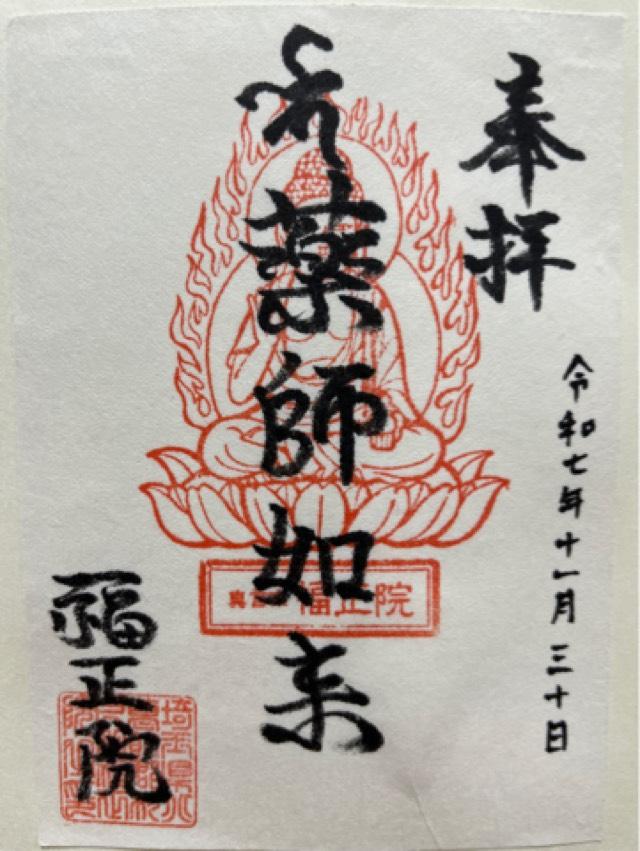 奉拝
令和七年十一月三十日
薬師如来
福正院
福正院